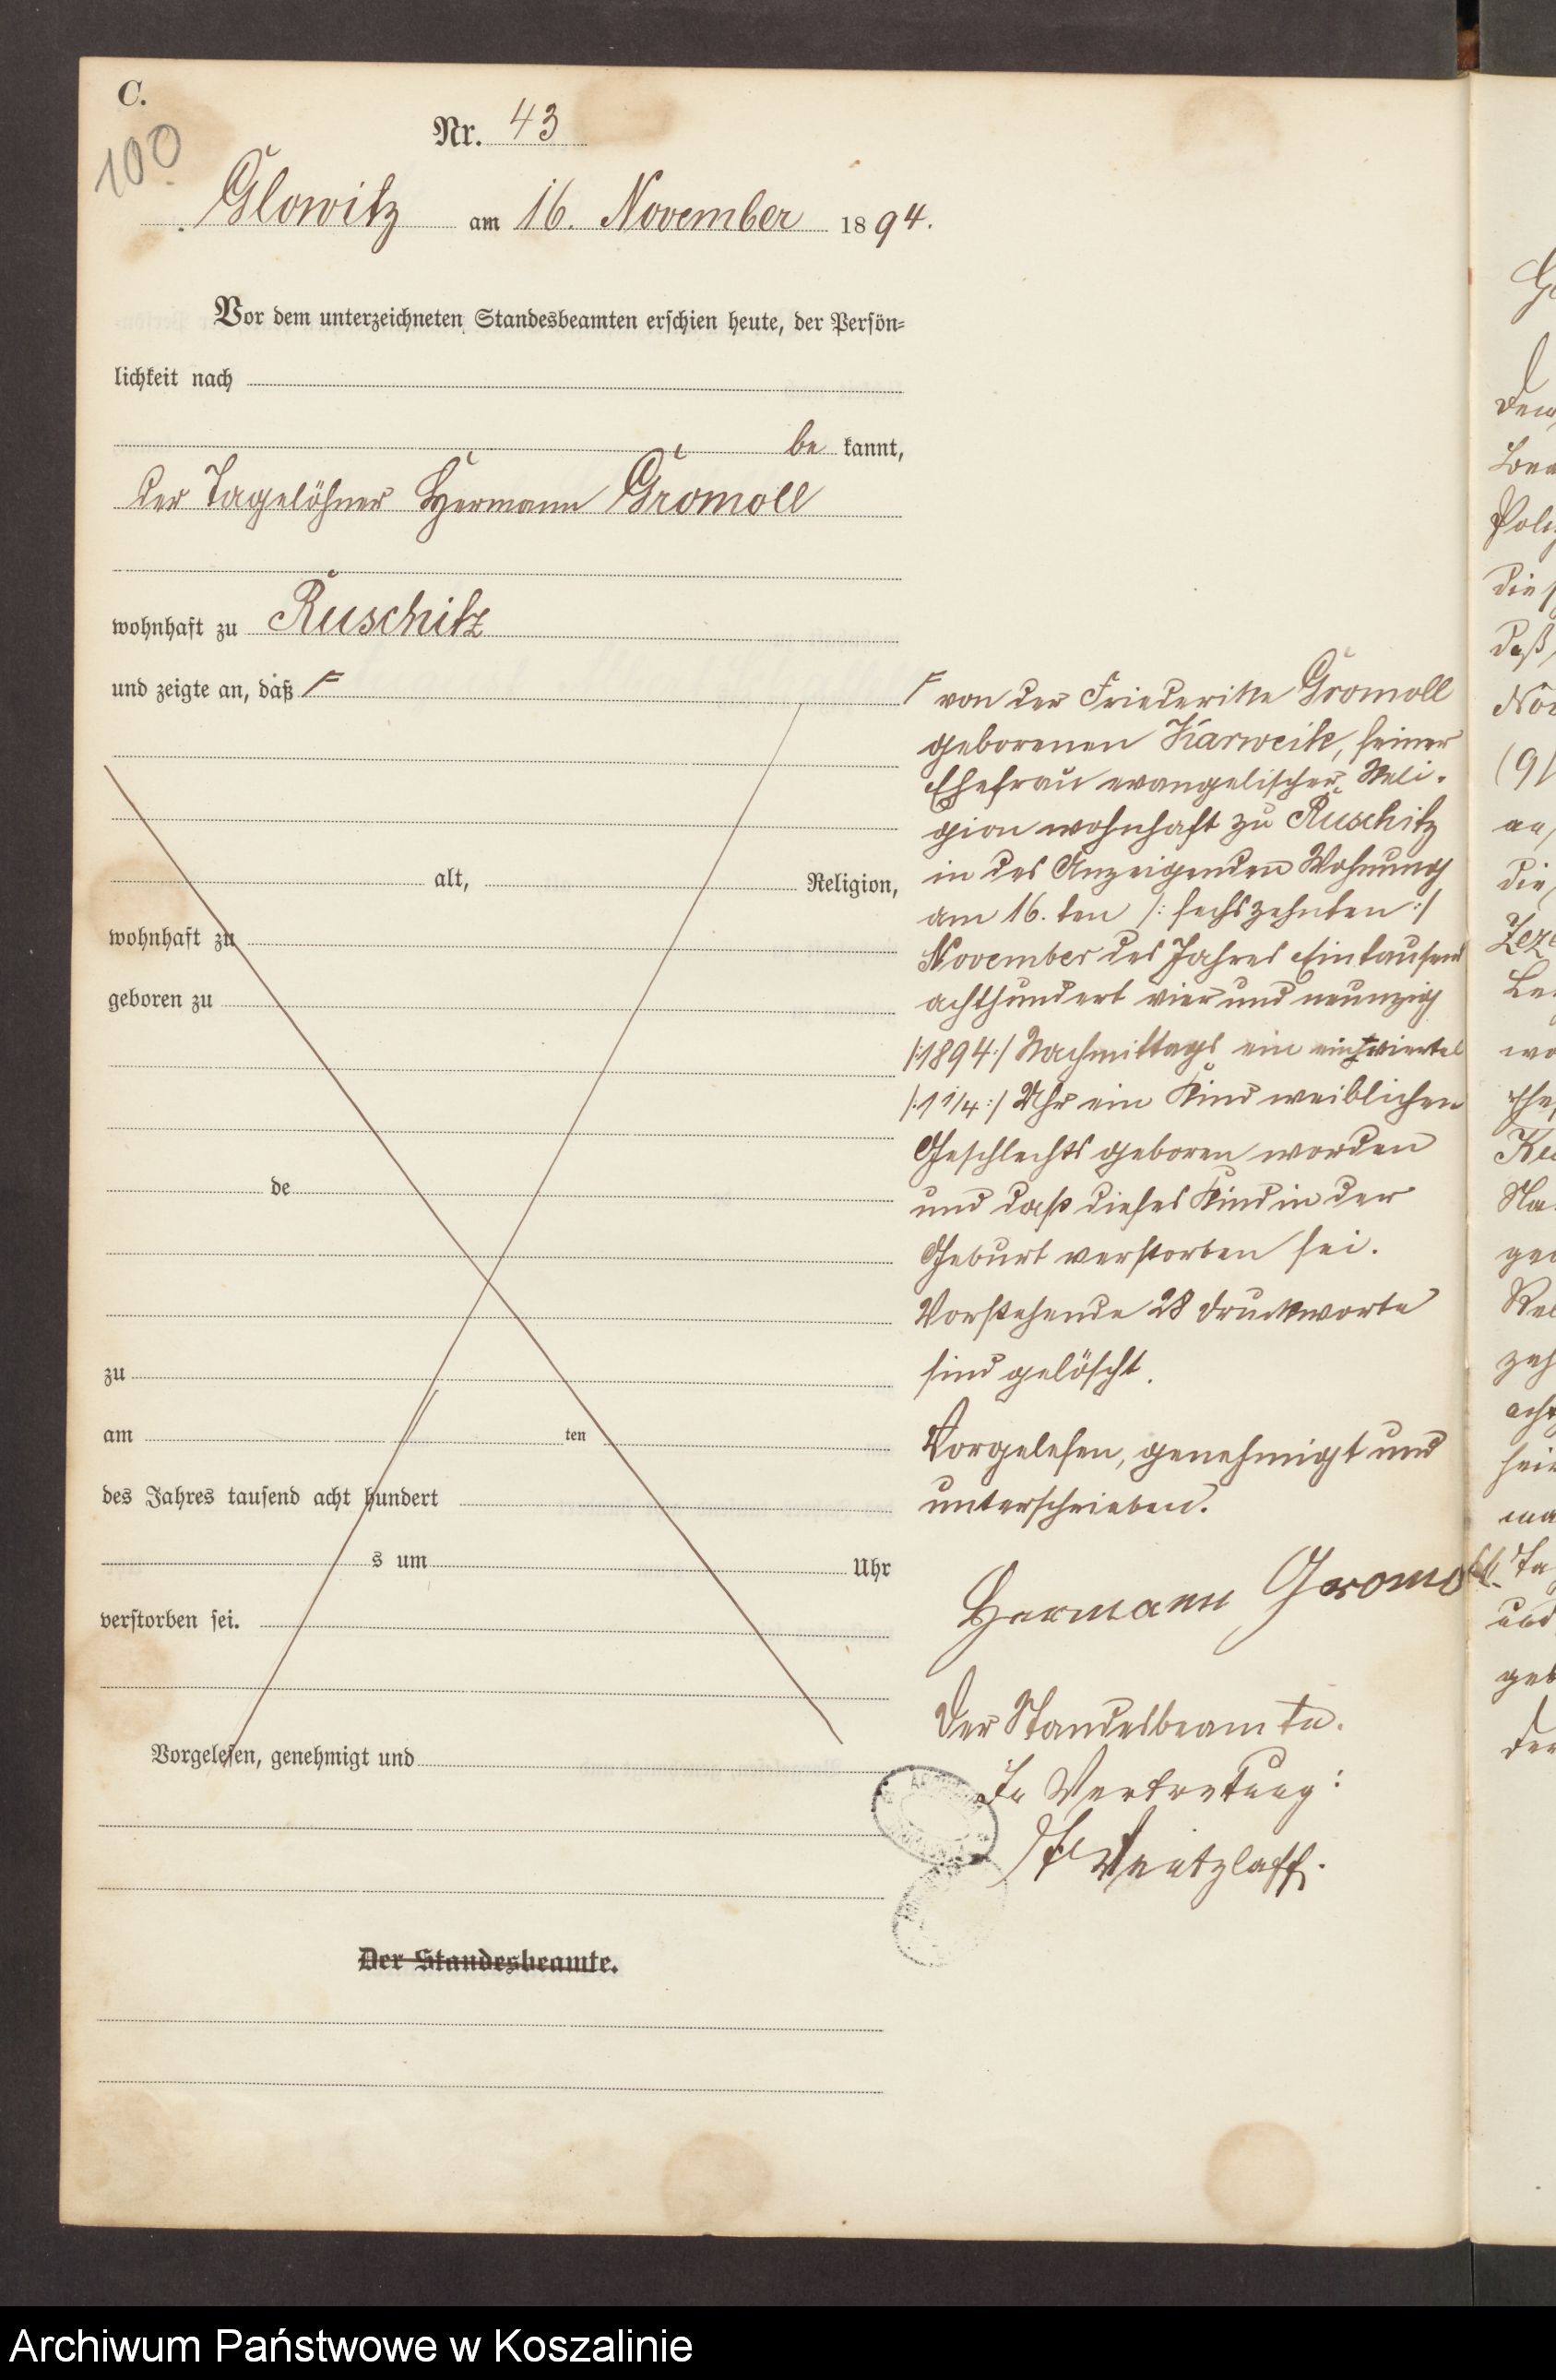 C.
100
Nr. 43
Glowitz am 16. November 1894.
Vor dem unterzeichneten Standesbeamten erschien heute, der Persön=
lichkeit nach
be kannt,
der Tagelöhner Hermann Gromoll
wohnhaft zu Ruschitz
und zeigte an, daß
alt, Religion,
wohnhaft zu
geboren zu
de
zu
am ten
des Jahres tausend acht hundert
s um Uhr
verstorben sei.
Vorgelesen, genehmigt und
Der Standesbeamte.
von der Friederike Gromoll
geborenen Karweik, seiner
Ehefrau evangelischer Reli-
gion wohnhaft zu Ruschitz
in des Anzeigenden Wohnung
am 16. ten /: sechszehnten :/
November des Jahres Eintausend
achthundert vier und neunzig
/:1894:/ Nachmittags ein einviertel
/:1 1/4:/ Uhr ein Kind weiblichen
Geschlechts geboren worden
und daß dieses Kind in der
Geburt verstorben sei.
Vorstehende 28 Druckworte
sind gelöscht.
Vorgelesen, genehmigt und
unterschrieben.
Hermann Gromoll.
Der Standesbeamte.
In Vertretung:
Archiwum Państwowe w Koszalinie